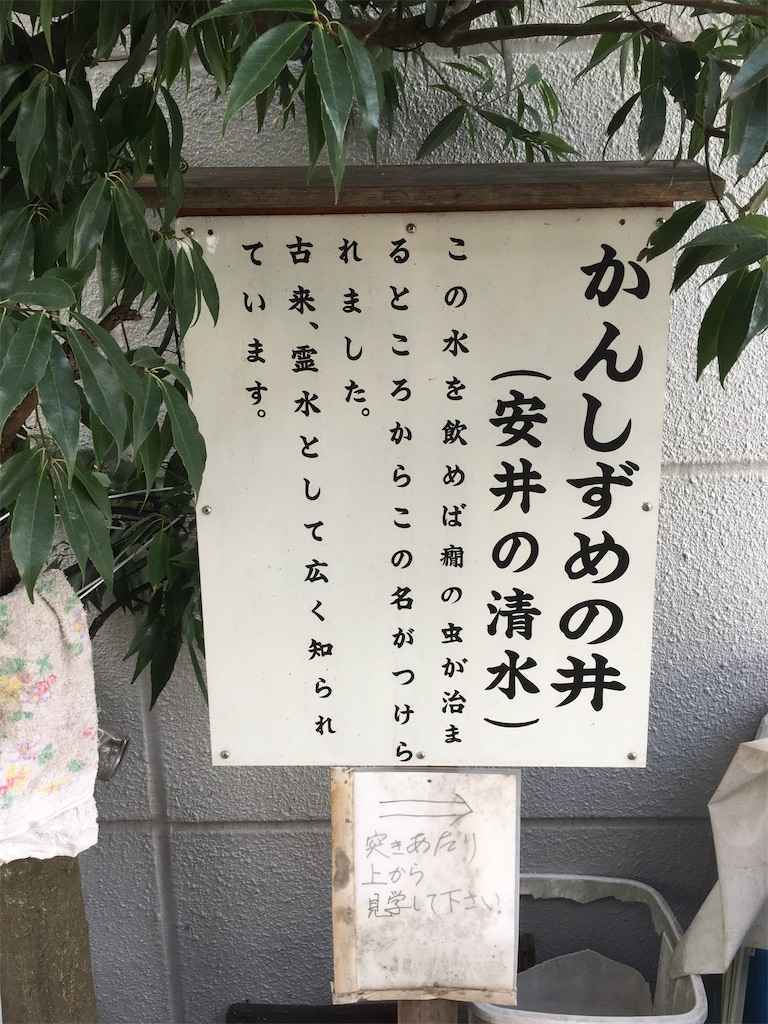 かんしずめの井
(安井の清水)
この水を飲めば癇の虫が治ま
るところからこの名がつけら
れました。
古来、霊水として広く知られ
ています。
→
突きあたり
上から
見学して下さい